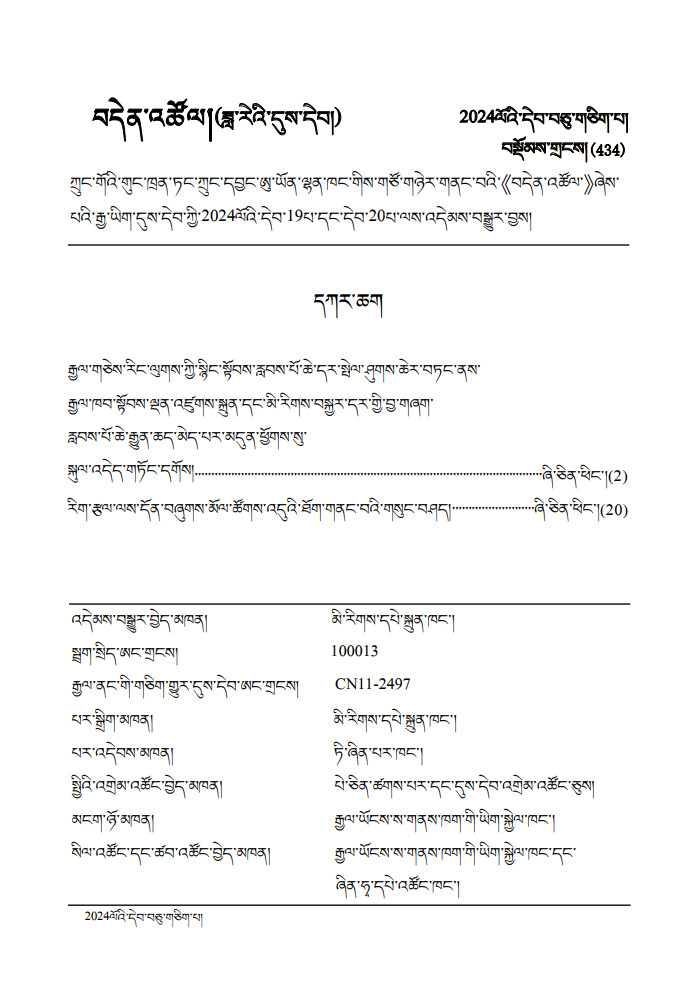 བདེན་འཚོལ།(ཟླ་རེའི་དུས་དེབ།)
2024ལོའི་དེབ་བཅུ་གཅིག་པ།
བསྡོམས་གྲངས།(434)
ཀྲུང་གོའི་གུང་ཁྲན་ཏང་ཀྲུང་དབྱང་ཨུ་ཡོན་ལྷན་ཁང་གིས་གཙོ་གཉེར་གནང་བའི་《བདེན་འཚོལ་》ཞེས་
པའི་རྒྱ་ཡིག་དུས་དེབ་ཀྱི་2024ལོའི་དེབ་19པ་དང་དེབ་20པ་ལས་འདེམས་བསྒྱུར་བྱས།
དཀར་ཆག
རྒྱལ་གཅེས་རིང་ལུགས་ཀྱི་སྙིང་སྟོབས་རླབས་པོ་ཆེ་དར་སྤེལ་ཤུགས་ཆེར་བཏང་ནས་
རྒྱལ་ཁབ་སྟོབས་ལྡན་འཛུགས་སྐྲུན་དང་མི་རིགས་བསྐྱར་དར་གྱི་བྱ་གཞག་
རླབས་པོ་ཆེ་རྒྱུན་ཆད་མེད་པར་མདུན་ཕྱོགས་སུ་
སྐུལ་འདེད་གཏོང་དགོས།........................ཞི་ཅིན་ཕིང་།(2)
རིག་རྩལ་ལས་དོན་བཞུགས་མོལ་ཚོགས་འདུའི་ཐོག་གནང་བའི་གསུང་བཤད།........................ཞི་ཅིན་ཕིང་།(20)
འདེམས་བསྒྱུར་བྱེད་མཁན། མི་རིགས་དཔེ་སྐྲུན་ཁང་།
སྦྲག་སྲིད་ཨང་གྲངས། 100013
རྒྱལ་ནང་གི་གཅིག་གྱུར་དུས་དེབ་ཨང་གྲངས། CN11-2497
པར་སྒྲིག་མཁན། མི་རིགས་དཔེ་སྐྲུན་ཁང་།
པར་འདེབས་མཁན། ཏི་ཞིན་པར་ཁང་།
སྤྱིའི་འགྲེམ་འཚོང་བྱེད་མཁན། པེ་ཅིན་ཚགས་པར་དང་དུས་དེབ་འགྲེམ་འཚོང་ཅུས།
མངག་ཉོ་མཁན། རྒྱལ་ཡོངས་ས་གནས་ཁག་གི་ཡིག་སྐྱེལ་ཁང་།
སིལ་འཚོང་དང་ཚབ་འཚོང་བྱེད་མཁན། རྒྱལ་ཡོངས་ས་གནས་ཁག་གི་ཡིག་སྐྱེལ་ཁང་དང་
ཞིན་ཧྭ་དཔེ་འཚོང་ཁང་།
2024ལོའི་དེབ་བཅུ་གཅིག་པ།